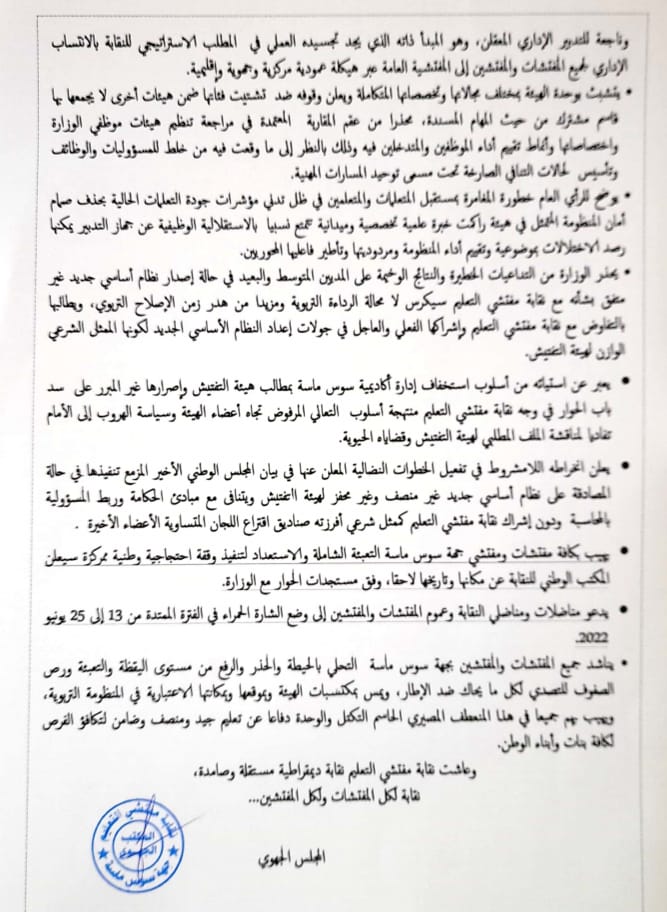 وناجعة للتدبير الإداري المعقلن، وهو المبدأ ذاته الذي يجد تجسيده العملي في المطلب الاستراتيجي للنقابة بالانتساب
الإداري لجميع المفتشات والمفتشين إلى المفتشية العامة عبر هيكلة عمودية مركزية وجهوية وإقليمية.
• يتشبث بوحدة الهيئة بمختلف مجالاتها وتخصصاتها المتكاملة ويعلن وقوفه ضد تشتيت فئاتها ضمن هيئات أخرى لا يجمعها بها
قاسم مشترك من حيث المهام المسندة، محذرا من عقم المقاربة المعتمدة في مراجعة تنظيم هيئات موظفي الوزارة
واختصاصاتها وأنماط تقييم أداء الموظفين والمتدخلين فيه وذلك بالنظر إلى ما وقعت فيه من خلط للمسؤوليات والوظائف
وتأسيس لحالات التنافي الصارخة تحت مسمى توحيد المسارات المهنية.
• يوضح للرأي العام خطورة المغامرة بمستقبل المتعلمات والمتعلمين في ظل تدني مؤشرات جودة التعلمات الحالية بحذف صمام
أمان المنظومة المتمثل في هيئة راكمت خبرة علمية تخصصية وميدانية تتمتع نسبيا بالاستقلالية الوظيفية عن جهاز التدبير يمكنها
رصد الاختلالات بموضوعية وتقييم أداء المنظومة ومردوديتها وتأطير فاعليها المحوريين.
• يحذر الوزارة من التداعيات الخطيرة والنتائج الوخيمة على المديين المتوسط والبعيد في حالة إصدار نظام أساسي جديد غير
متفق بشأنه مع نقابة مفتشي التعليم سيكرس لا محالة الرداءة التربوية ومزيدا من هدر زمن الإصلاح التربوي، ويطالبها
بالتفاوض مع نقابة مفتشي التعليم وإشراكها الفعلي والعاجل في جولات إعداد النظام الأساسي الجديد لكونها الممثل الشرعي
الوازن لهيئة التفتيش.
• يعبر عن استيائه من أسلوب استخفاف إدارة أكاديمية سوس ماسة بمطالب هيئة التفتيش وإصرارها غير المبرر على سد
باب الحوار في وجه نقابة مفتشي التعليم منتهجة أسلوب التعالي المرفوض تجاه أعضاء الهيئة وسياسة الهروب إلى الأمام
تفاديا لمناقشة الملف المطلبي لهيئة التفتيش وقضاياه الحيوية.
• يعلن انخراطه اللامشروط في تفعيل الخطوات النضالية المعلن عنها في بيان المجلس الوطني الأخير المزمع تنفيذها في حالة
المصادقة على نظام أساسي جديد غير منصف وغير محفز لهيئة التفتيش ويتنافى مع مبادئ الحكامة وربط المسؤولية
بالمحاسبة ودون إشراك نقابة مفتشي التعليم كممثل شرعي أفرزته صناديق اقتراع اللجان المتساوية الأعضاء الأخيرة .
• يهيب بكافة مفتشات ومفتشي جهة سوس ماسة التعبئة الشاملة والاستعداد لتنفيذ وقفة احتجاجية وطنية ممركزة سيعلن
المكتب الوطني للنقابة عن مكانها وتاريخها لاحقا، وفق مستجدات الحوار مع الوزارة.
• يدعو مناضلات ومناضلي النقابة وعموم المفتشات والمفتشين إلى وضع الشارة الحمراء في الفترة الممتدة من 13 إلى 25 يونيو
2022.
• يناشد جميع المفتشات والمفتشين بجهة سوس ماسة التحلي بالحيطة والحذر والرفع من مستوى اليقظة والتعبئة ورص
الصفوف للتصدي لكل ما يحاك ضد الإطار، ويمس بمكتسبات الهيئة وبموقعها وبمكانتها الاعتبارية في المنظومة التربوية،
ويهيب بهم جميعا في هذا المنعطف المصيري الحاسم التكتل والوحدة دفاعا عن تعليم جيد ومنصف وضامن لتكافؤ الفرص
لكافة بنات وأبناء الوطن.
وعاشت نقابة مفتشي التعليم نقابة ديمقراطية مستقلة وصامدة،
نقابة لكل المفتشات ولكل المفتشين...
المجلس الجهوي
نقابة مفتشي التعليم
المكتب
الجهوي
جهة سوس ماسة